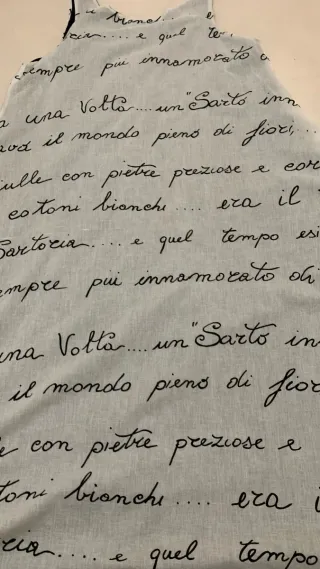 bianchi.... e
.... e quel te
empre pui innamorato
una Volta.... un "Sarto inn
il mondo pieno di fiori,...
ulle con pietre preziose e cor
cotoni bianchi.... era il
Sartoria..... e quel tempo esi
empre pui innamorato di
una Volta.... un "Sarto in
il mondo pieno di fior
e con pietre preziose e
toni bianchi.... era i
ria..... e quel tempo